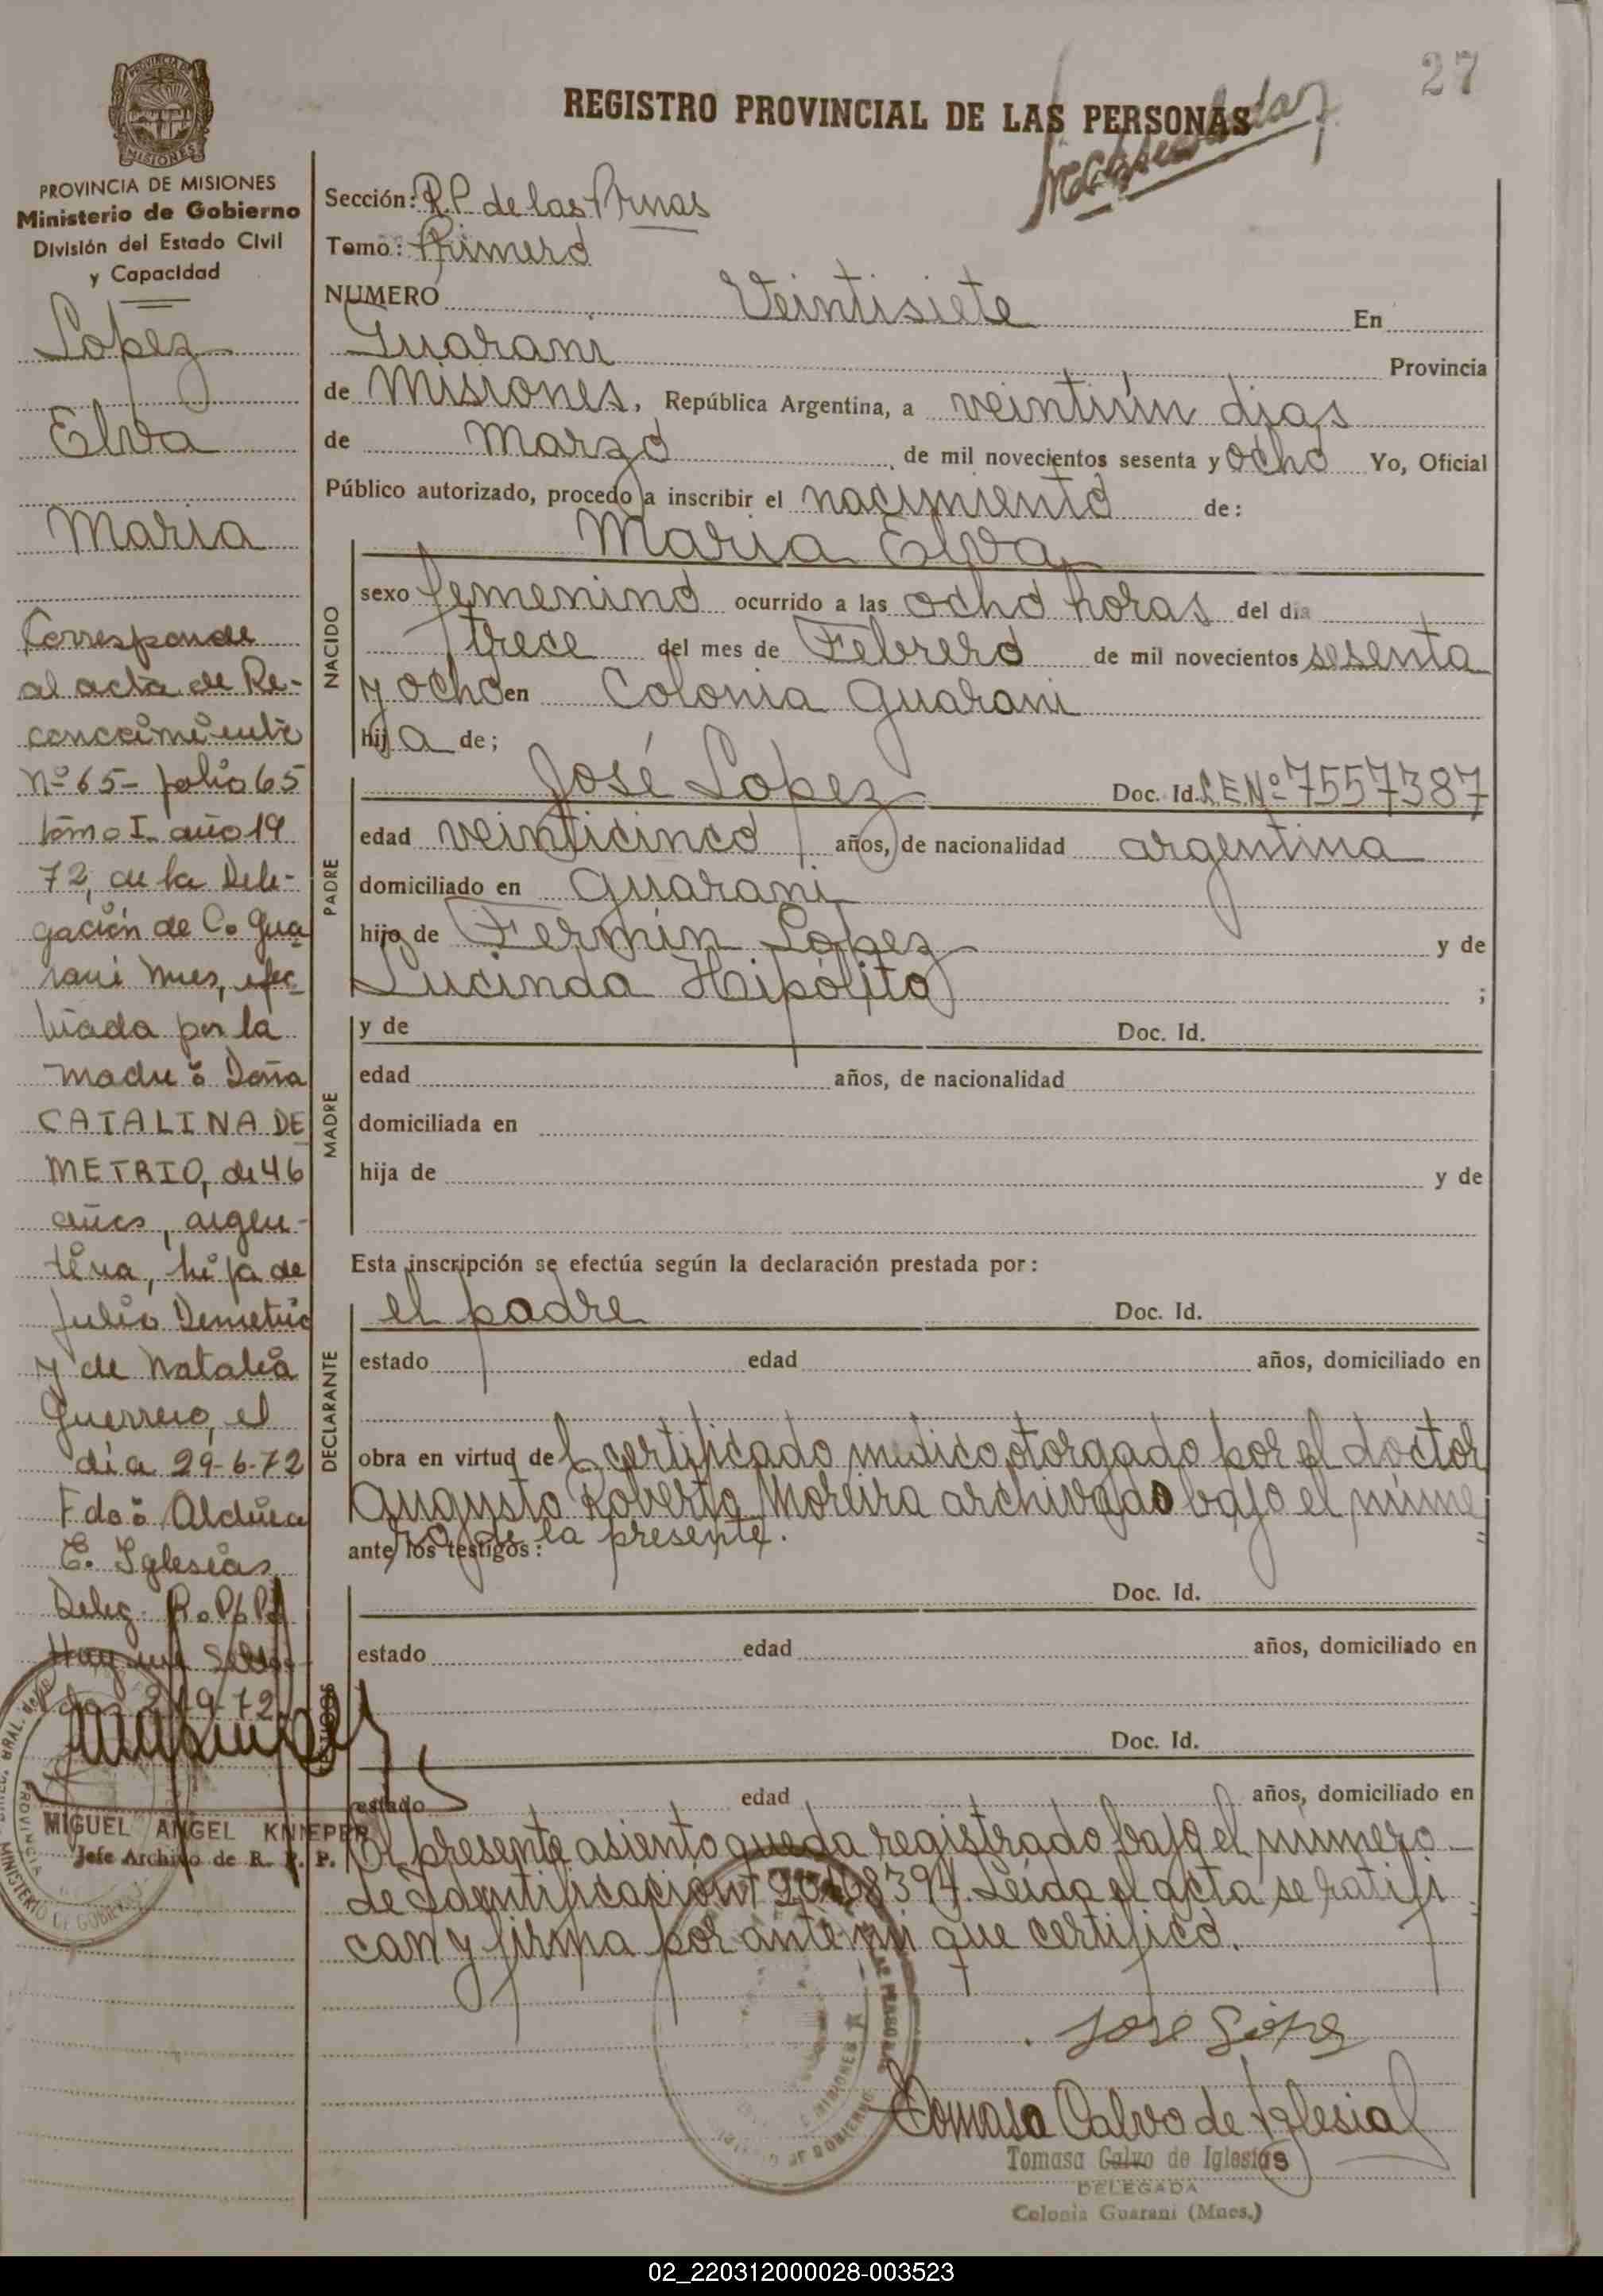 27
REGISTRO PROVINCIAL DE LAS PERSONAS
PROVINCIA DE MISIONES
MISIONES
PROVINCIA DE MISIONES
Ministerio de Gobierno
División del Estado Civil
y Capacidad
Lopez
Elva
Maria
Corresponde
al acta de Re-
conocimiento
Nº 65 - folio 65
tomo I año 19
72, de la Dele-
gación de C. Gua
raní Mnes, efec-
tuada por la
madre: Doña
CATALINA DE
METRIO, de 46
años, argen-
tina, hija de
Julio Demetrio
y de Natalia
Guerrero, el
día 29-6-72
Fdo: Alduca
C. Iglesias
Deleg. R.P.P.
MIGUEL ANGEL KNIEPER
Jefe Archivo de R. P. P.
Sección: R.P. de las Prnas
Tomo: Primero
NUMERO Veintisiete En
Guarani Provincia
de Misiones, República Argentina, a veintiún dias
de marzo de mil novecientos sesenta y ocho Yo, Oficial
Público autorizado, procedo a inscribir el nacimiento de:
NACIDO
Maria Elva
sexo femenino ocurrido a las ocho horas del dia
trece del mes de Febrero de mil novecientos sesenta
y ocho en Colonia Guarani
hija de;
PADRE
José Lopez Doc. Id. LE Nº 7557387
edad veinticinco años, de nacionalidad argentina
domiciliado en Guarani
hijo de Fermín Lopez y de
Lucinda Hipólito ;
MADRE
y de Doc. Id.
edad años, de nacionalidad
domiciliada en
hija de y de
Esta inscripción se efectúa según la declaración prestada por:
DECLARANTE
el padre Doc. Id.
estado edad años, domiciliado en
obra en virtud del certificado medico otorgado por el doctor
Augusto Roberto Moreira archivado bajo el núme
ro de la presente.
ante los testigos:
Doc. Id.
estado edad años, domiciliado en
Doc. Id.
estado edad años, domiciliado en
El presente asiento queda registrado bajo el numero
de Identificación Leida el acta se ratifi
can y firma por ante mi que certifico.
José López
Tomasa Calvo de Iglesias
Tomasa Calvo de Iglesias
DELEGADA
Colonia Guarani (Mnes.)
02_220312000028-003523